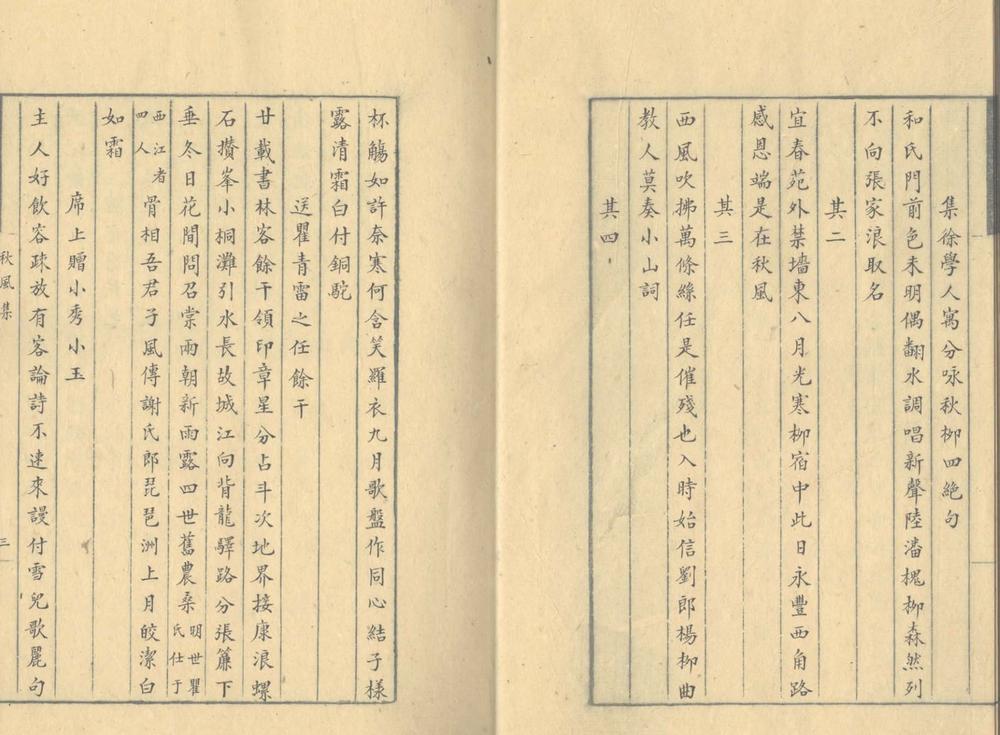 集徐學人寓分咏秋柳四絕句
和氏門前色未明偶翻水調唱新聲陸潘槐柳森然列
不向張家浪取名
其二
宜春苑外禁墻東八月光寒柳宿中此日永豐西角路
感恩端是在秋風
其三
西風吹拂萬條絲任是催殘也入時始信劉郎楊柳曲
教人莫奏小山詞
其四
杯觴如許奈寒何含笑羅衣九月歌盤作同心結子樣
露清霜白付銅駝
送瞿青雷之任餘干
廿載書林客餘干領印章星分占斗次地界接康浪螺
石攢峯小桐灘引水長故城江向背龍驛路分張簾下
垂冬日花間問召棠雨朝新雨露四世舊農桑明世瞿氏仕于
西江者四人骨相吾君子風傳謝氏郎琵琶洲上月皎潔白
如霜
席上贈小秀小玉
主人好飲容疎放有客論詩不速來謾付雪兒歌麗句
秋風集
三